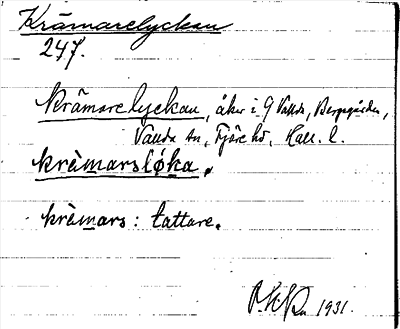 Krämarelyckan
247.
Krämarelyckan, åker i 9 Vallda, Bergegården,
Vallda sn, Fjäre hd, Hall. l.
krèmarsløka.
krèmars: tattare.
1931.